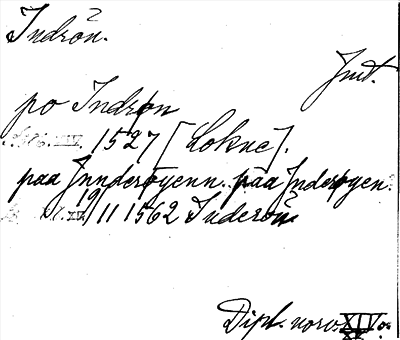 Indrön.
Jmt.
po Indrøn
XIV. 1527 [Lokne].
paa Jnnderøyenn. paa Jnderøyen.
19/11 1562 Inderön
Dipl. norv. XIV os
XV